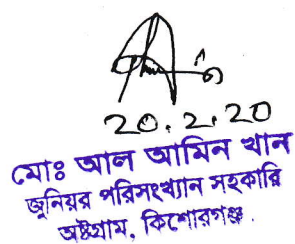 20.2.20
মোঃ আল আমিন খান
জুনিয়র পরিসংখ্যান সহকারি
অষ্টগ্রাম, কিশোরগঞ্জ.